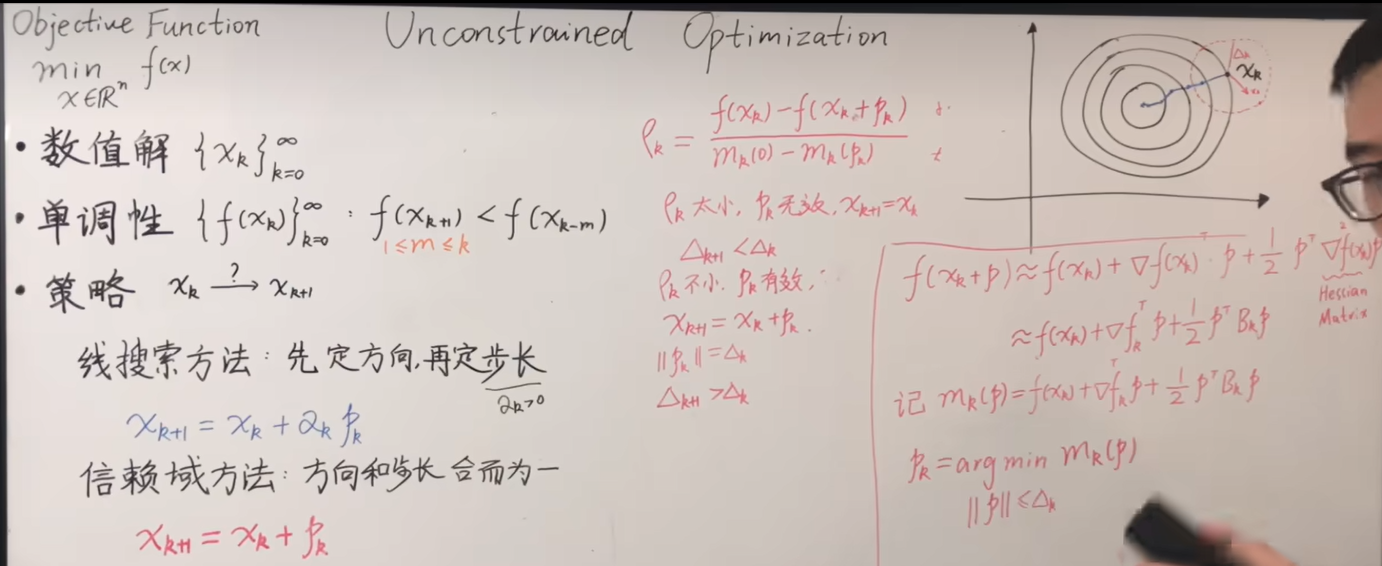 Objective Function
Unconstrained Optimization
min f(x)
x∈ℝⁿ
• 数值解 {x_k}_{k=0}^∞
• 单调性 {f(x_k)}_{k=0}^∞ : f(x_{k+1}) < f(x_{k-m})
1≤m≤k
• 策略 x_k →? x_{k+1}
线搜索方法: 先定方向,再定步长
α_k>0
x_{k+1} = x_k + α_k p_k
信赖域方法: 方向和步长合而为一
x_{k+1} = x_k + p_k
ρ_k = (f(x_k) - f(x_k + p_k)) / (m_k(0) - m_k(p_k))
ρ_k 太小, p_k 无效, x_{k+1} = x_k
Δ_{k+1} < Δ_k
ρ_k 不小. p_k 有效,
x_{k+1} = x_k + p_k.
‖p_k‖ = Δ_k
Δ_{k+1} > Δ_k
Δ_k
x_k
f(x_k + p) ≈ f(x_k) + ∇f(x_k)ᵀ · p + 1/2 pᵀ ∇²f(x_k) p
Hessian
Matrix
≈ f(x_k) + ∇f_kᵀ p + 1/2 pᵀ B_k p
记 m_k(p) = f(x_k) + ∇f_kᵀ p + 1/2 pᵀ B_k p
p_k = arg min m_k(p)
‖p‖ ≤ Δ_k